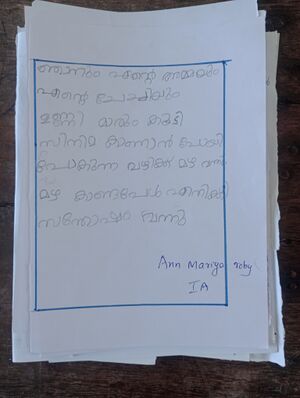 ഞാനും എന്റെ അമ്മയും
എന്റെ ചേച്ചിയും
ഉണ്ണി യും കൂടി
സിനിമ കാണാൻ പോയി
പോകുന്ന വഴിക്ക് മഴ വന്നു
മഴ കണ്ടപ്പോൾ എനിക്ക്
സന്തോഷം വന്നു
Ann Mariya roby
I A